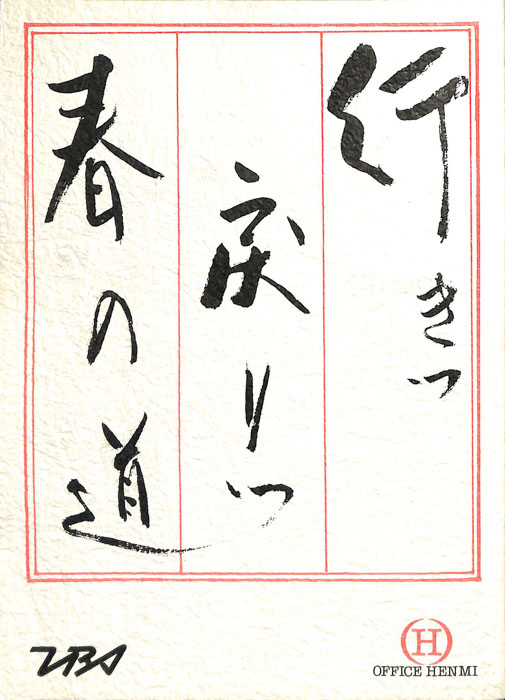 行きつ
戻りつ
春の道
TBS
H
OFFICE HENMI